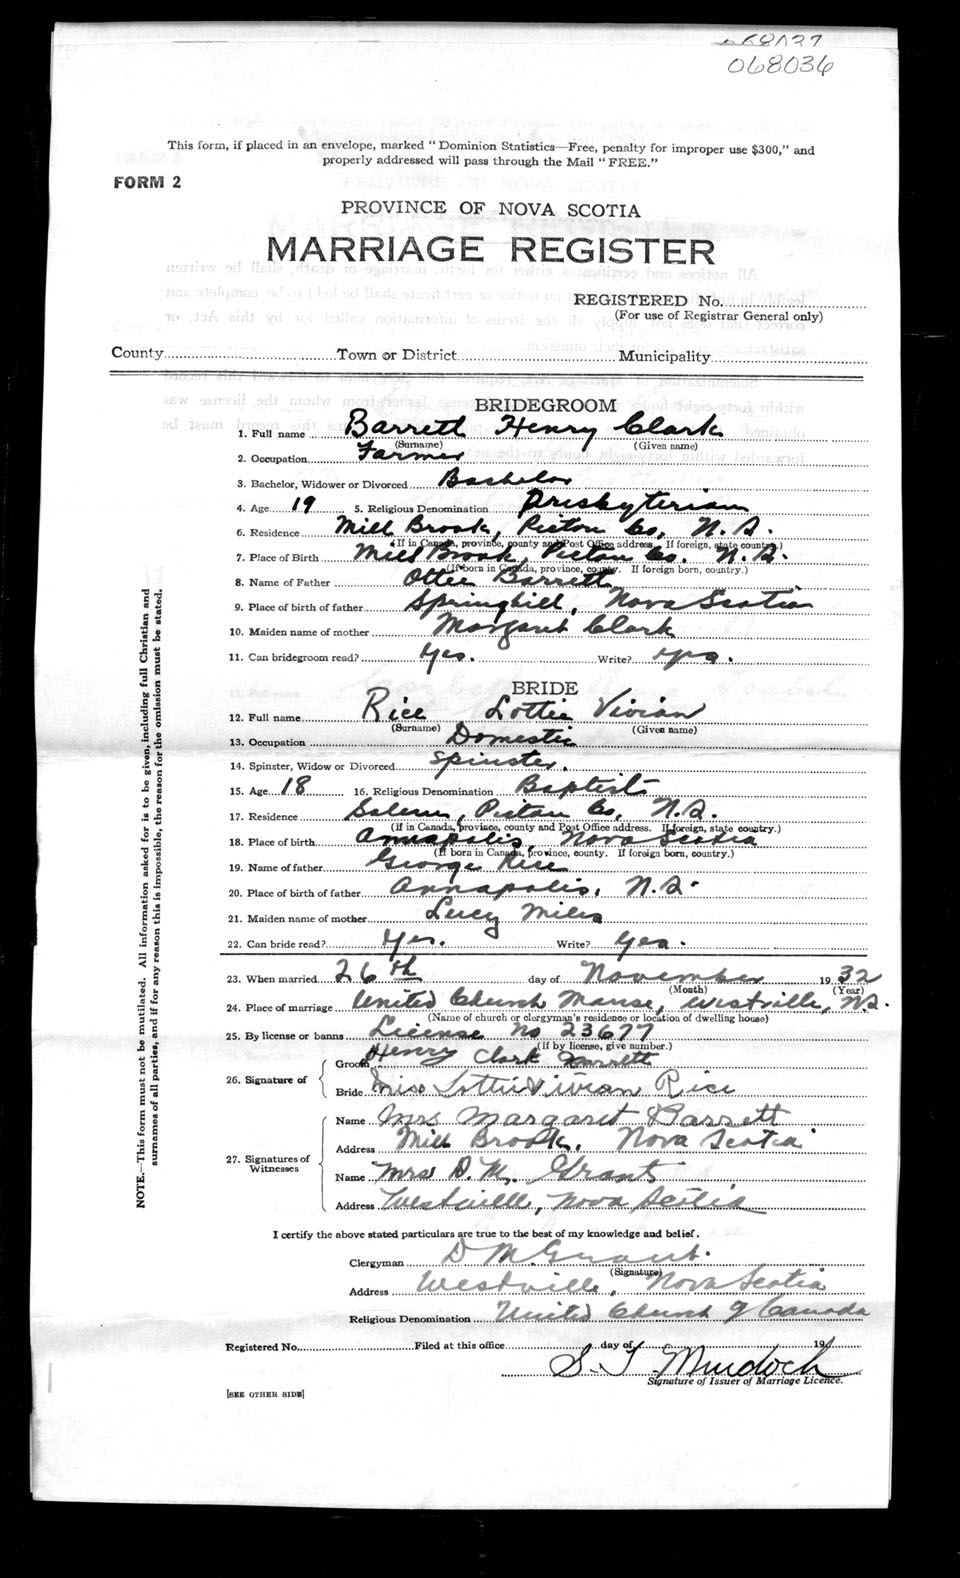 068036
This form, if placed in an envelope, marked "Dominion Statistics—Free, penalty for improper use $300," and
properly addressed will pass through the Mail "FREE."
FORM 2
PROVINCE OF NOVA SCOTIA
MARRIAGE REGISTER
REGISTERED No.
(For use of Registrar General only)
County Town or District Municipality
BRIDEGROOM
1. Full name Barrett Henry Clark
(Surname) (Given name)
2. Occupation Farmer
3. Bachelor, Widower or Divorced Bachelor
4. Age 19 5. Religious Denomination Presbyterian
6. Residence Mill Brook, Pictou Co, N.S.
(If in Canada, province, county and Post Office address. If foreign, state country.)
7. Place of Birth Mill Brook, Pictou Co. N.S.
(If born in Canada, province, county. If foreign born, country.)
8. Name of Father Ottie Barrett
9. Place of birth of father Springhill, Nova Scotia
10. Maiden name of mother Margaret Clark
11. Can bridegroom read? Yes. Write? Yes.
BRIDE
12. Full name Rice Lottie Vivian
(Surname) (Given name)
13. Occupation Domestic
14. Spinster, Widow or Divorced Spinster.
15. Age 18 16. Religious Denomination Baptist
17. Residence Salem, Pictou Co, N.S.
(If in Canada, province, county and Post Office address. If foreign, state country.)
18. Place of birth Annapolis, Nova Scotia
(If born in Canada, province, county. If foreign born, country.)
19. Name of father George Rice
20. Place of birth of father Annapolis, N.S.
21. Maiden name of mother Lucy Miles
22. Can bride read? Yes. Write? Yes.
23. When married 26th day of November 1932
(Month) (Year)
24. Place of marriage United Church Manse, Westville, N.S.
(Name of church or clergyman's residence or location of dwelling house)
25. By license or banns License No 23677
(If by license, give number.)
26. Signature of
Groom Henry Clark Barrett
Bride Miss Lottie Vivian Rice
27. Signatures of Witnesses
Name Mrs Margaret Barrett
Address Mill Brook, Nova Scotia
Name Mrs D. M. Grant
Address Westville, Nova Scotia
I certify the above stated particulars are true to the best of my knowledge and belief.
Clergyman D M Grant.
(Signature)
Address Westville, Nova Scotia
Religious Denomination United Church of Canada
Registered No. Filed at this office day of 19
S. T. Murdoch
Signature of Issuer of Marriage Licence.
[SEE OTHER SIDE]
NOTE.—This form must not be mutilated. All information asked for is to be given, including full Christian and
surnames of all parties, and if for any reason this is impossible, the reason for the omission must be stated.